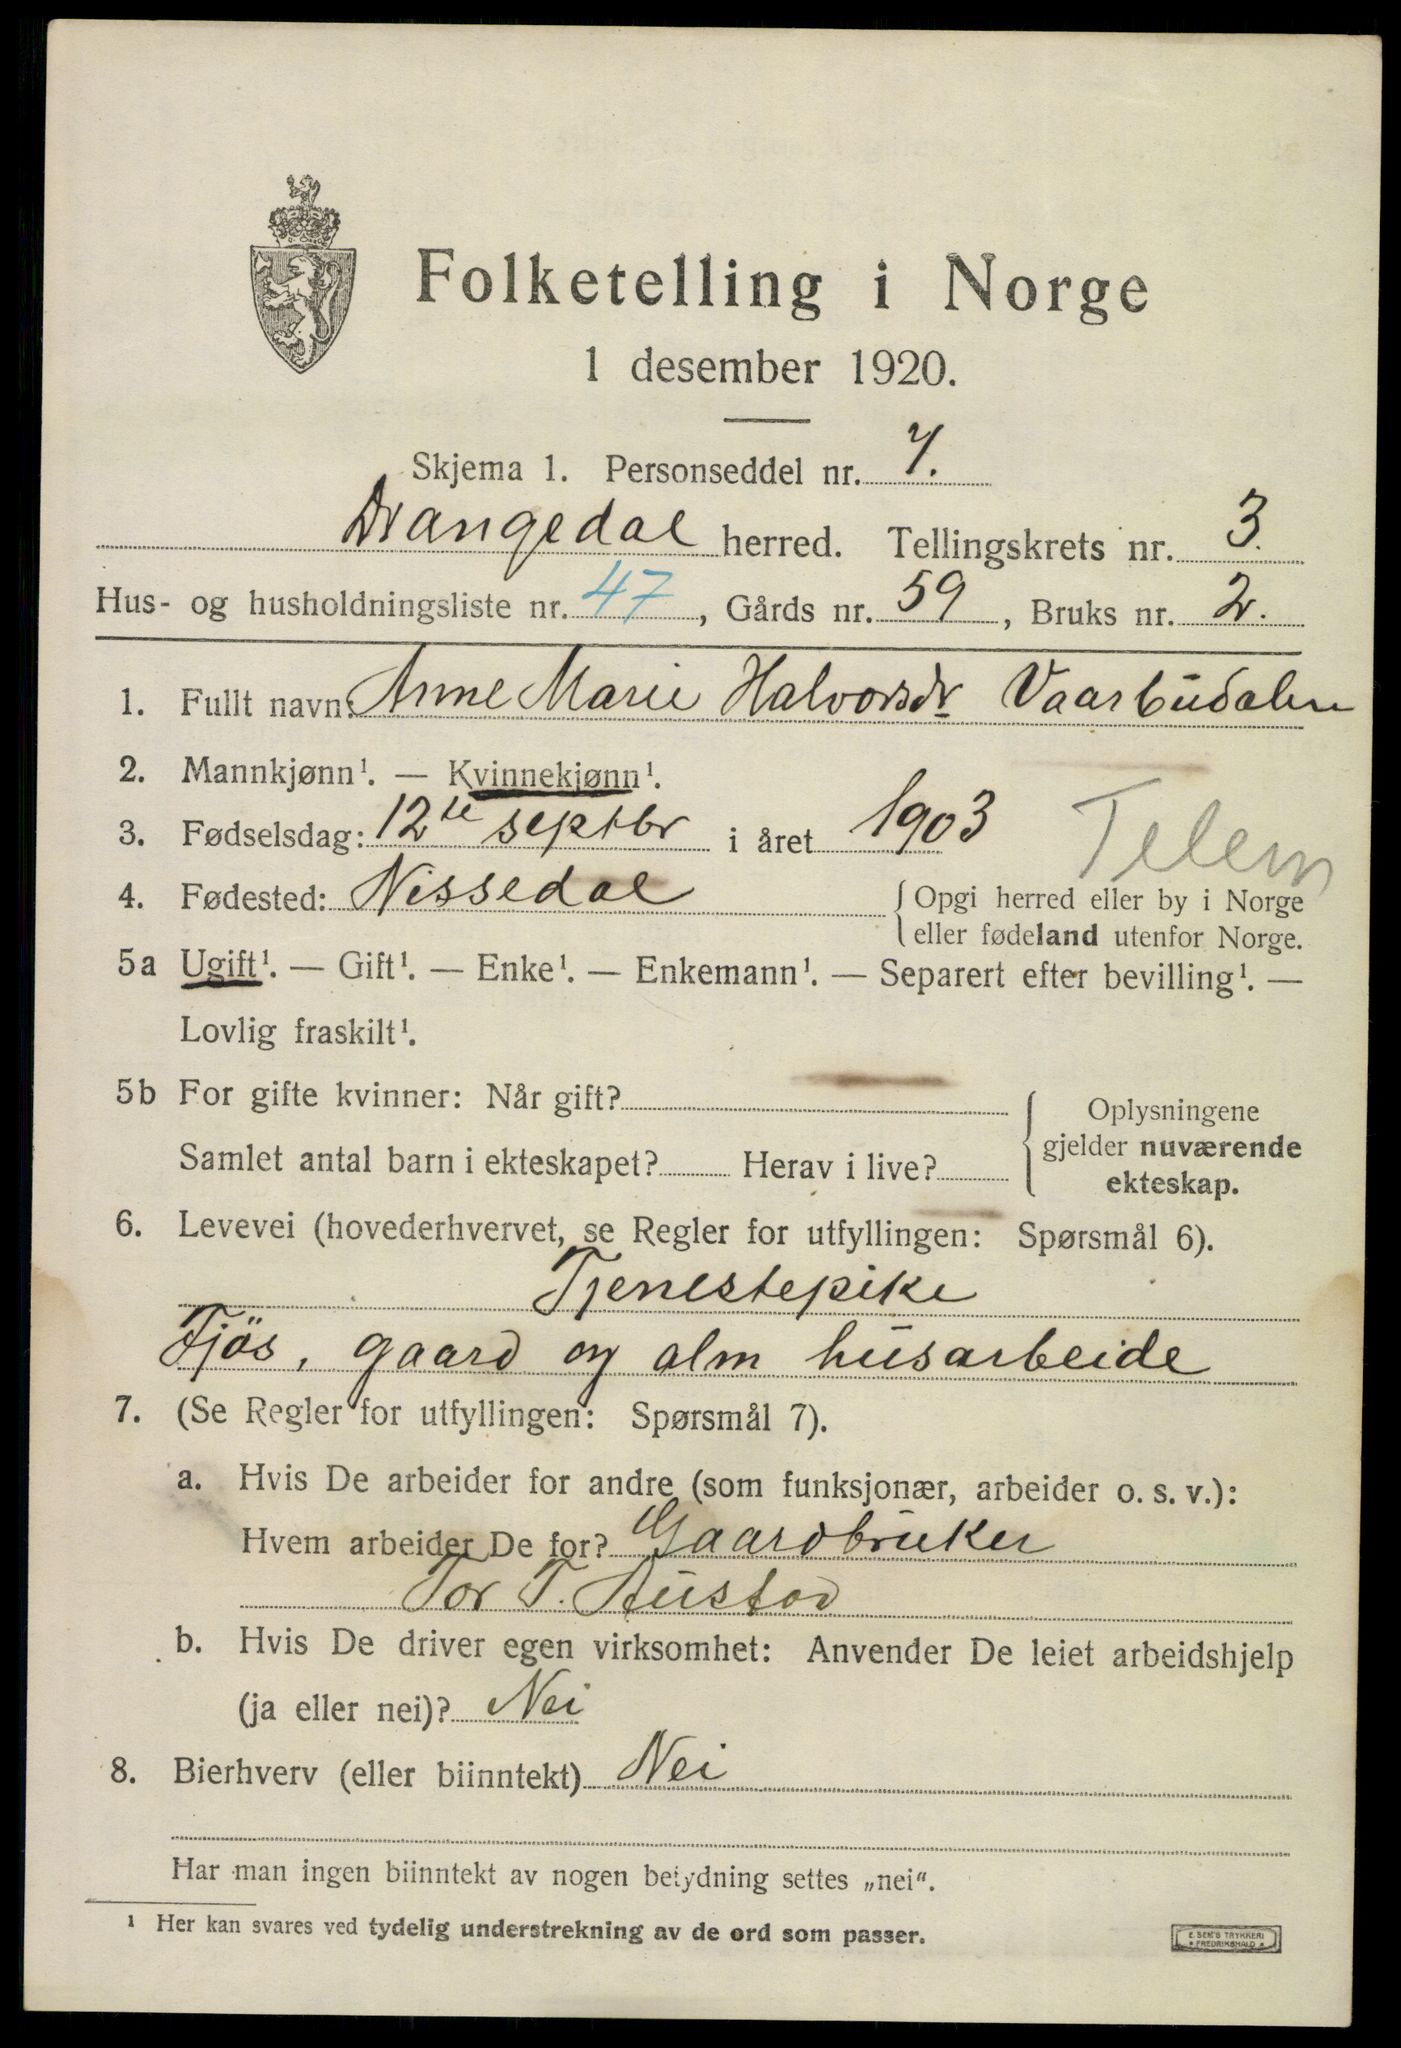 Folketelling i Norge
1 desember 1920.
Skjema 1. Personseddel nr. 7.
Drangedal herred. Tellingskrets nr. 3.
Hus- og husholdningsliste nr. 47, Gårds nr. 59, Bruks nr. 2.
1. Fullt navn: Anne Marie Halvorsdr Vaarbudalen
2. Mannkjønn¹. — Kvinnekjønn¹.
3. Fødselsdag: 12te septbr i året 1903
Telem
4. Fødested: Nissedal { Opgi herred eller by i Norge
eller fødeland utenfor Norge.
5a Ugift¹. — Gift¹. — Enke¹. — Enkemann¹. — Separert efter bevilling¹. —
Lovlig fraskilt¹.
5b For gifte kvinner: Når gift? { Oplysningene
gjelder nuværende
Samlet antal barn i ekteskapet? Herav i live? ekteskap.
6. Levevei (hovederhvervet, se Regler for utfyllingen: Spørsmål 6).
Tjenestepike
Fjøs, gaard og alm husarbeide
7. (Se Regler for utfyllingen: Spørsmål 7).
a. Hvis De arbeider for andre (som funksjonær, arbeider o. s. v.):
Hvem arbeider De for? Gaardbruker
Tor T. Austad
b. Hvis De driver egen virksomhet: Anvender De leiet arbeidshjelp
(ja eller nei)? Nei
8. Bierhverv (eller biinntekt) Nei
Har man ingen biinntekt av nogen betydning settes „nei“.
¹ Her kan svares ved tydelig understrekning av de ord som passer.
E. SEM'S TRYKKERI
FREDRIKSHALD